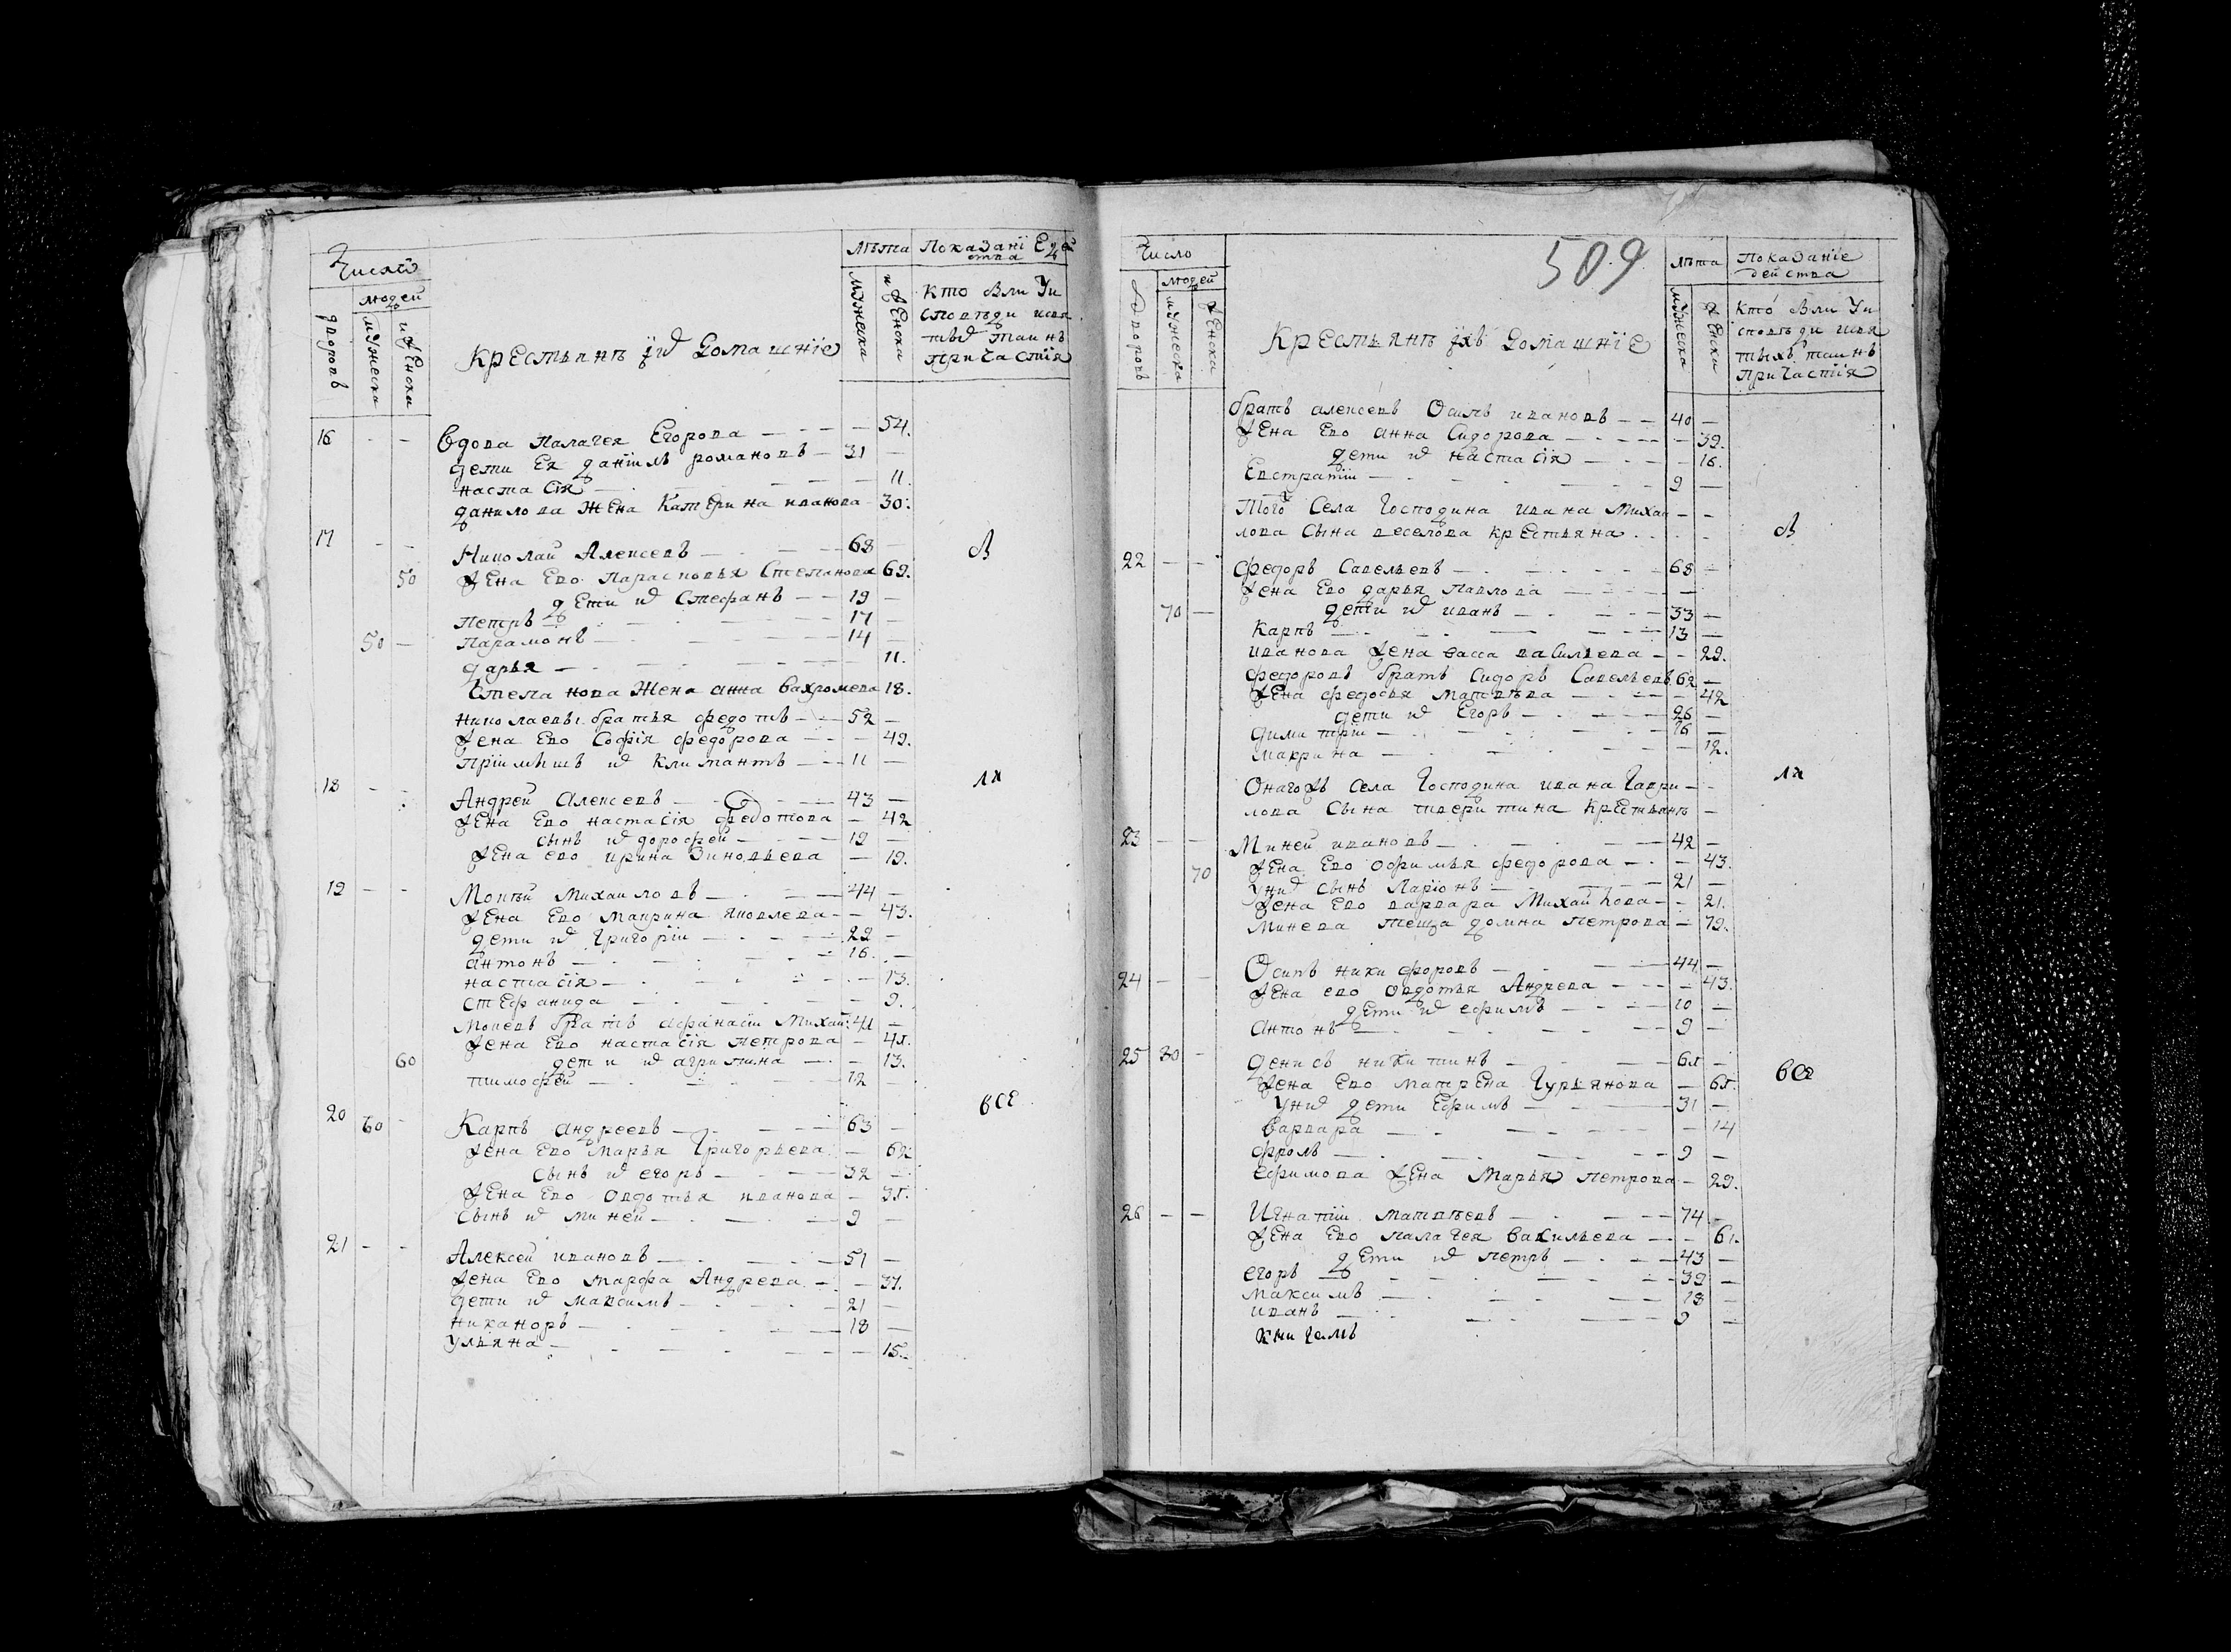 Число
людей
дворовъ
мужеска
женска
Крестьянъ ихъ домашніе
лѣта
мужеска
женска
Показаніе дей
ства
кто былъ у и
сповѣди исвя
тыхъ таинъ
причастія
16 - - вдова палагея Егорова - 54.
дети Ея даніилъ романовъ - 31 -
настасія - 11.
данилова жена катерина иванова - 30.
17 - - Николай Алексеевъ - 68 -
50 жена Ево Парасковья Степанова 69.
дети их Стефанъ - 19 -
петръ - 17 -
50 - Парамонъ - 14 -
дарья - 11.
Степанова жена анна вахромева 18.
николаевы братья федотъ - 52 -
жена Ево Софія федорова - 49.
пріимышъ их климантъ - 11 -
18 - - Андрей алексевъ - 43 -
жена Ево настасія федотова - 42
сынъ их дорофей - 19 -
жена ево ирина Зиновьева - 19.
19 - - Мокѣй михаиловъ - 44 -
жена Ево макрина яковлева - 43.
дети их григоріи - 22 -
антонъ - 16. -
настасія - 13.
стефанида - 9.
мокевъ братъ афанасіи Михаи: 41 -
жена Ево настасія петрова - 41.
60 дети их агрипина - 13.
тимофей - 12 -
20 60 - Карпъ андреевъ - 63 -
жена Ево марья григорьева - 62.
сынъ их егоръ - 32 -
жена Ево овдотья иванова - 31.
сынъ их миней - 9 -
21 - - Алексеи ивановъ - 51 -
жена Ево марфа Андрева - 37.
дети их максимъ - 21 -
никаноръ - 18 -
ульяна - 15.
бы
ли
все
509
Число
людей
дворовъ
мужеска
женска
Крестьянъ ихъ домашніе
лѣта
мужеска
женски
Показаніе
действа
кто были у и
сповѣди исвя
тыхъ таинъ
причастія
братъ алексеевъ Осипъ ивановъ - 40 -
жена Ево анна Сидорова - 39.
дети их настасія - 16.
Евстратіи - 9 -
Того Села господина ивана Михаи
лова сына веселова крестьяна
22 - - федоръ Савельевъ - 68 -
жена Ево дарья павлова -
70 - дети их иванъ - 33 -
карпъ - 13 -
иванова жена васса васильева - 29.
федоровъ братъ Сидоръ Савельевъ 62 -
жена федосья матвѣева - 42
дети их Егоръ - 26 -
димитріи - 16 -
макрина - 12.
Онагожъ Села господина ивана гаври
лова сына тверитина крестьянъ -
23 - - Миней ивановъ - 42 -
70 жена Ево офимья федорова - 43.
у них сынъ ларіонъ - 21 -
жена Ево варвара Михаилова - 21.
минева теща домна петрова - 72.
24 - - Осипъ никифоровъ - 44 -
жена ево овдотья Андрева - 43.
дети их ефимъ - 10 -
антонъ - 9 -
25 80 - денисъ никитинъ - 61 -
жена Ево матрена гурьянова - 61.
у них дети Ефимъ - 31 -
варвара - 14
фролъ - 9 -
ефимова жена марья петрова - 29.
26 - - Игнатіи матвѣевъ - 74 -
жена Ево палагея васильева - 61.
дети их петръ - 43 -
егоръ - 39 -
максимъ - 18 -
иванъ - 9 -
бы
ли
все